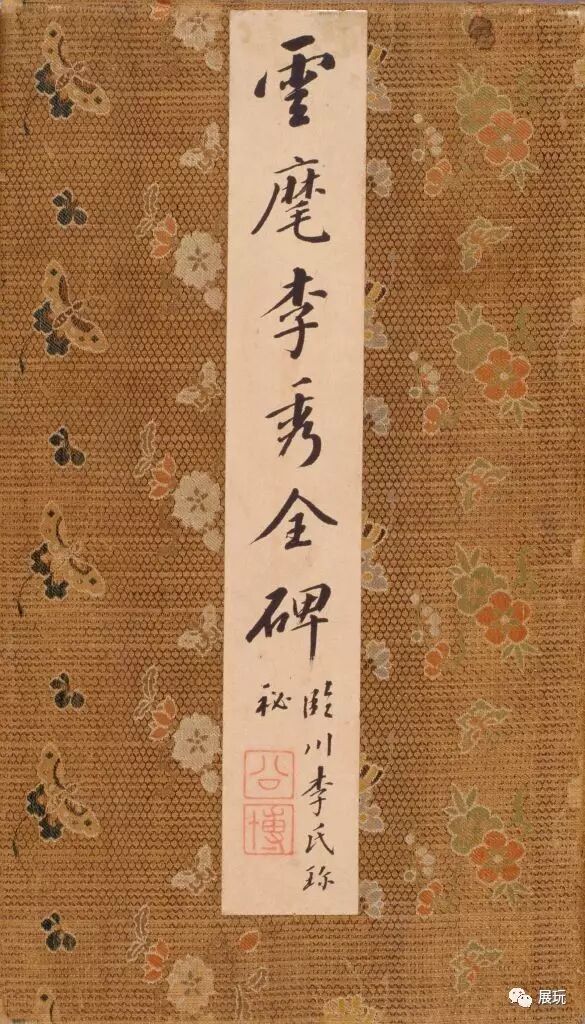 雲麾李秀全碑
臨川李氏珎
秘
公博
展玩